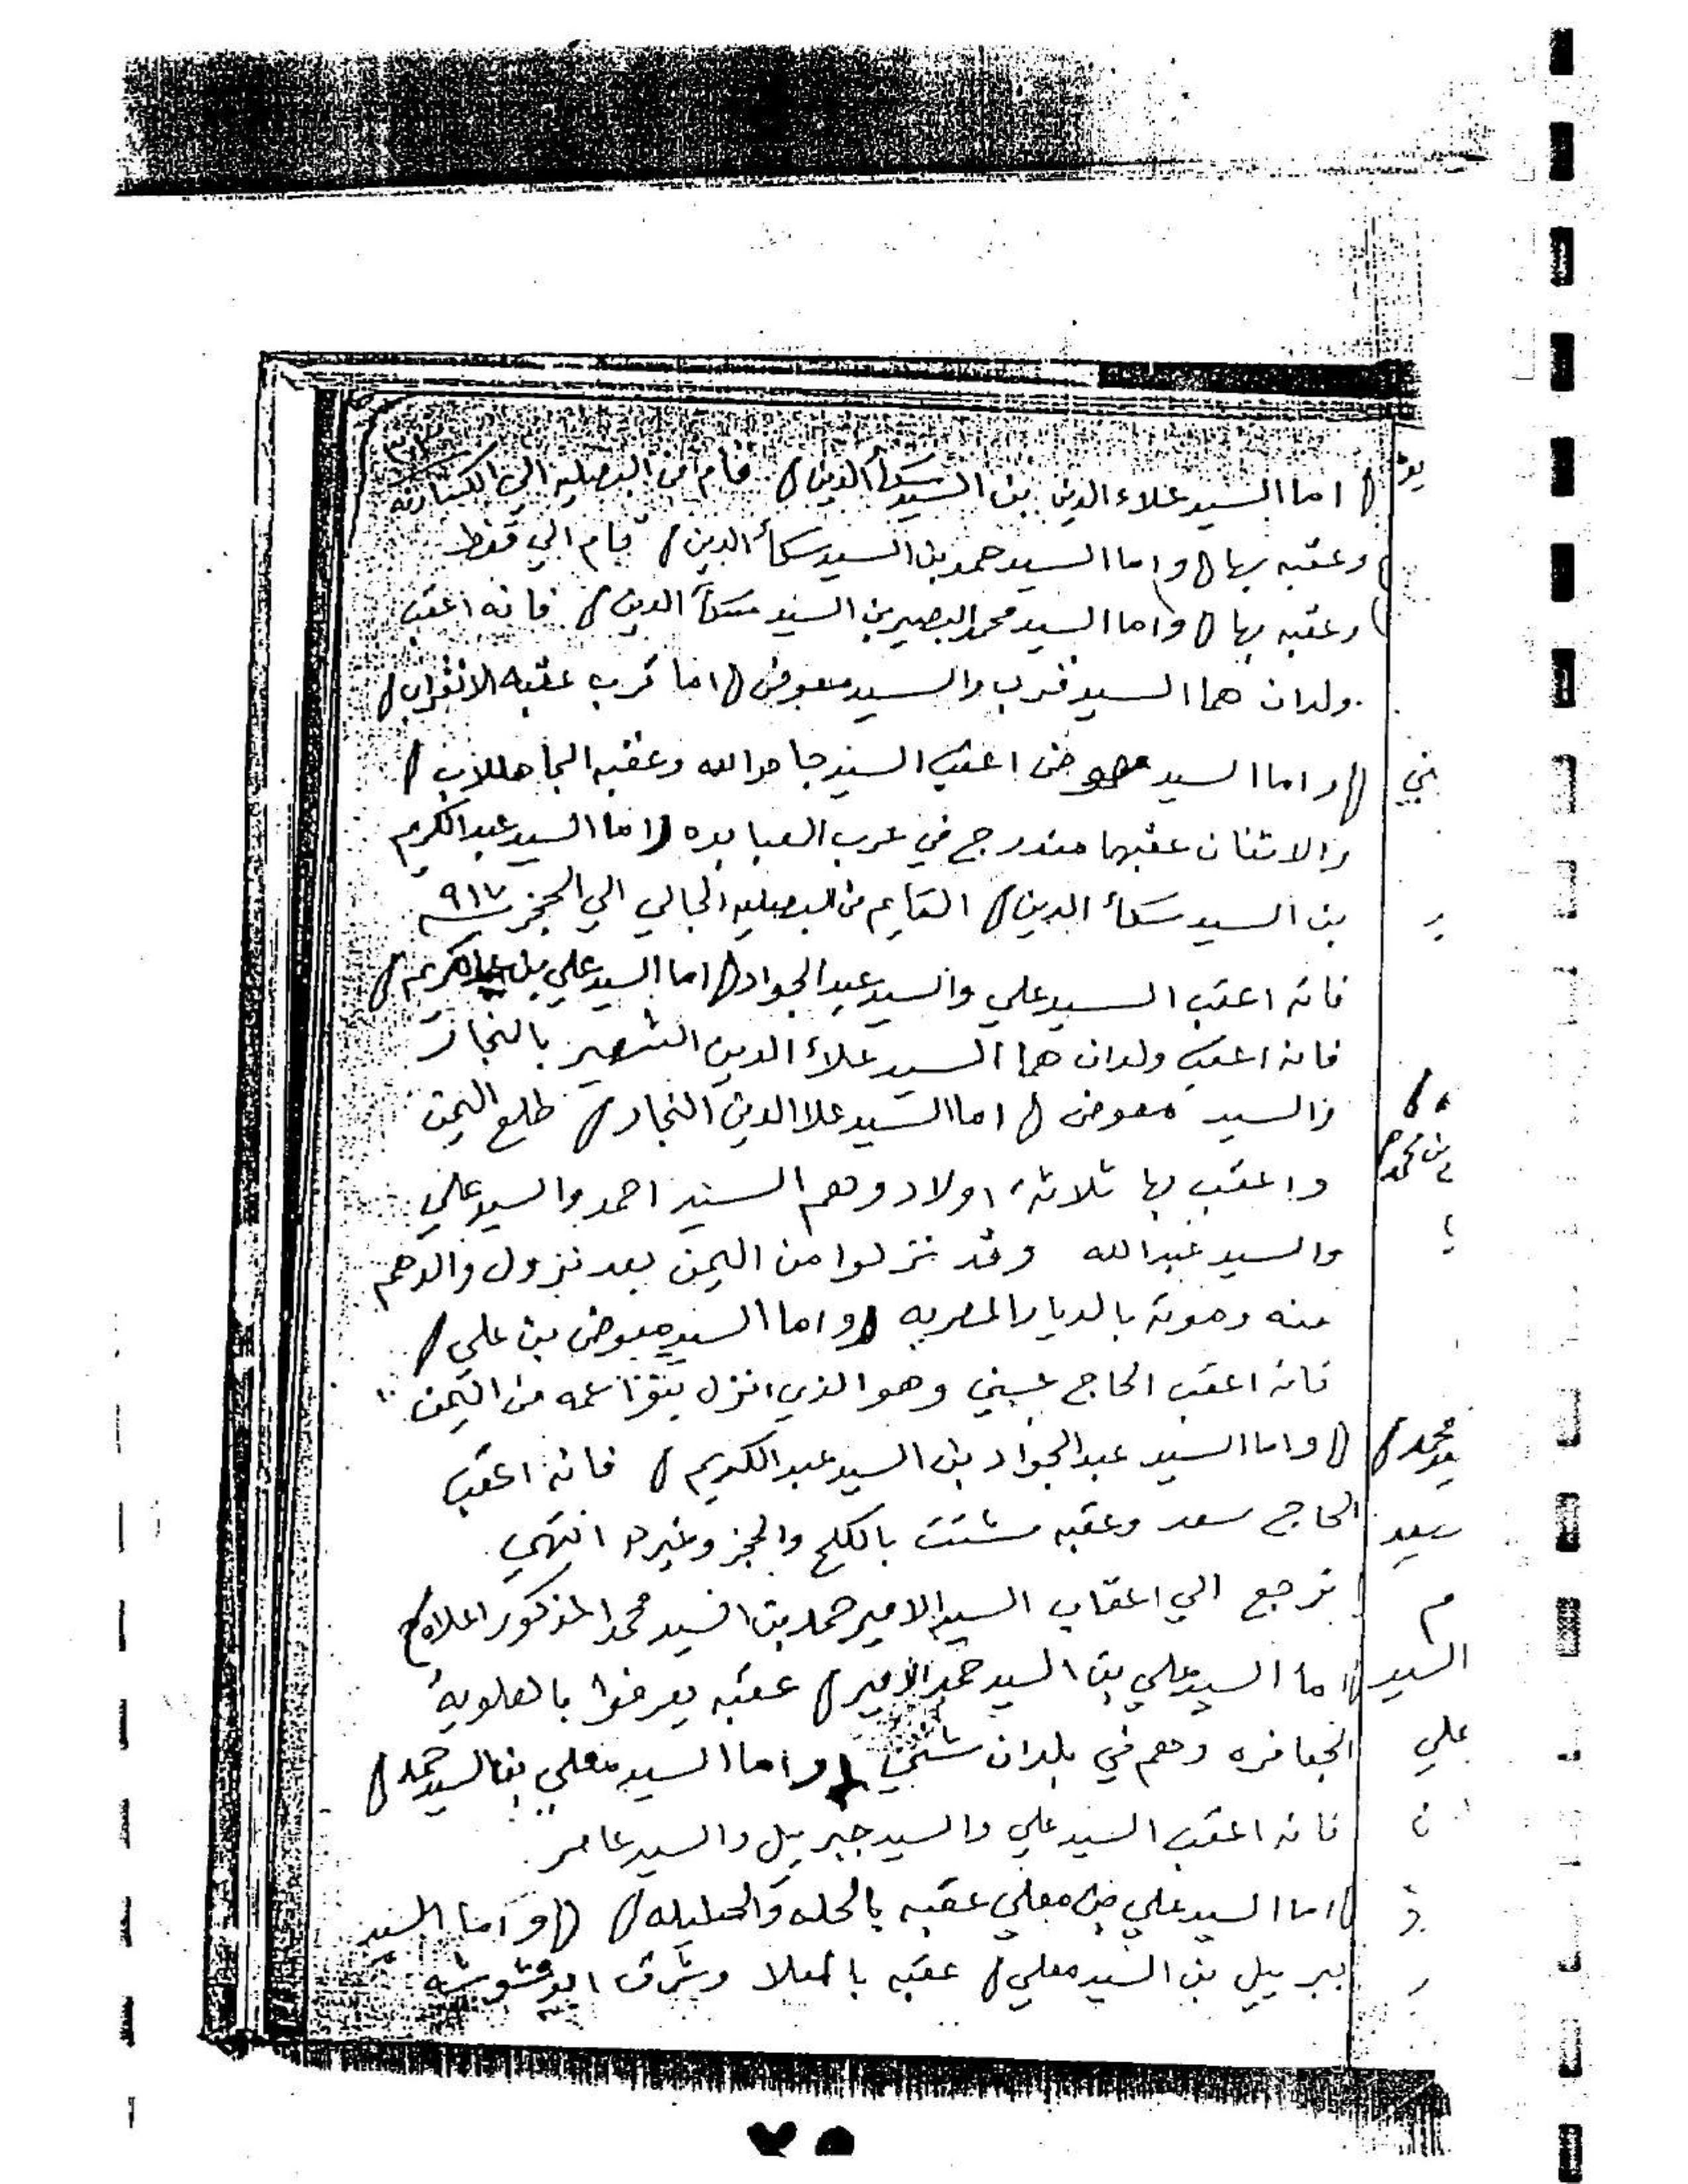 ٣٣
اما السيد علاء الدين بن السيد الدين قام من البصليه الي
وعقبه بها واما السيد حمد بن السيد الدين قام الي قفط
وعقبه بها واما السيد محمد البصير بن السيد الدين فانه اعقب
ولدان هما السيد قرب والسيد معوض اما قرب عقبه
واما السيد معوض اعقب السيد جاهدالله وعقبه
والاثنان عقبهما مندرج في عرب العبابده اما السيد عبدالكريم
بن السيد الدين القايم من البصليه الي الحجز ٩١٧
فانه اعقب السيد علي والسيد عبد الجواد اما السيد علي بن عبدالكريم
فانه اعقب ولدان هما السيد علاء الدين الشهير بالنجار
والسيد معوض اما السيد علا الدين النجار طلع اليمن
واعقب بها ثلاثة اولاد وهم السيد احمد والسيد علي
والسيد عبدالله وقد نزلوا من اليمن بعد نزول والدهم
منه وموته بالديار المصريه واما السيد معوض بن علي
فانه اعقب الحاج وهو الذي انزل عمه من اليمن
واما السيد عبدالجواد بن السيد عبدالكريم فانه اعقب
الحاج سعد وعقبه مشتت بالكلح والحجز وغيره انتهي
نرجع الي اعقاب السيد الامير حمد بن السيد محمد المذكور اعلاه
اما السيد علي بن السيد حمد الامير عقبه يعرفوا بالعلوية
الجعافره وهم في بلدان شتي واما السيد معلي بن السيد حمد
فانه اعقب السيد علي والسيد جبريل والسيد عامر
اما السيد علي بن معلي عقبه بالحله والحليله واما السيد
جبرييل بن السيد معلي عقبه بالمعلا وشرق
محمد
سعيد
م
السيد
علي
ن
٧٥